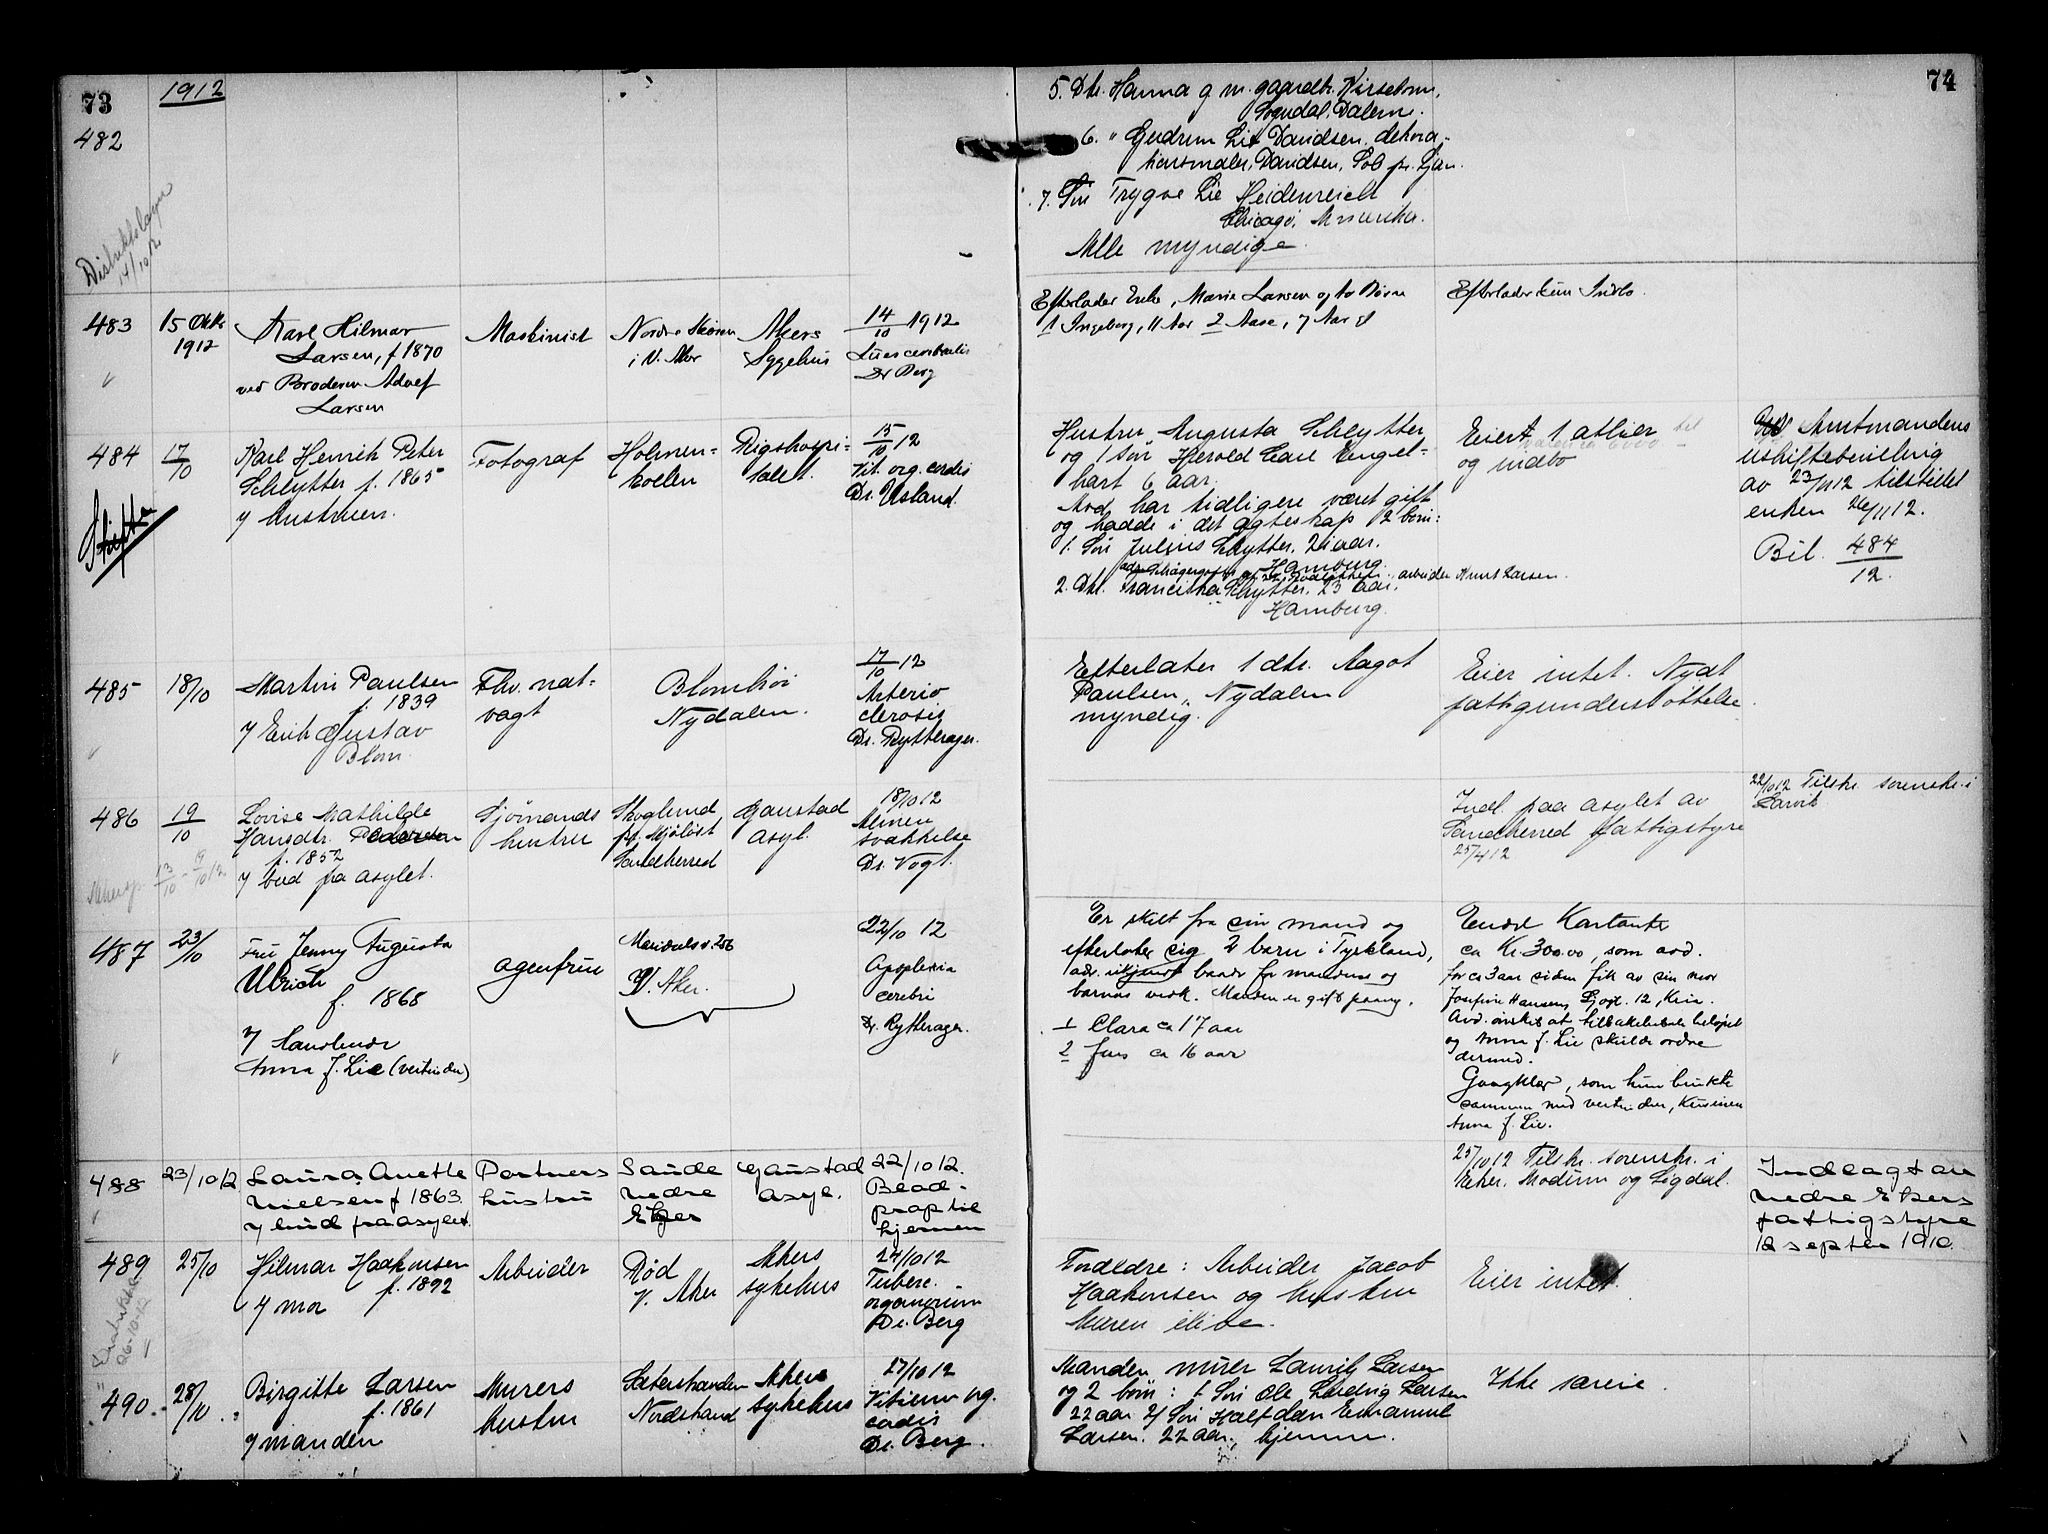 73
1912
482
14/10 12
5. Dtr. Hanna g. m. gaardbr. Kirsebom,
Sogndal, Dalerne.
6. " Gudrun Lie Davidsen. dekora-
tionsmaler, Davidsen,
7. Søn Trygve Lie Heidenreich
Chicago, Amerika.
Alle myndige.
74
483
15 Okt
1912
Karl Hilmar
Larsen, f 1870
ved Broderen Adolf
Larsen
Maskinist
Nordre Skøien
i V. Aker
Akers
Sygehus
14/10 1912
Lues cerebralis
Dr Berg
Efterlader Enke, Marie Larsen og to Børn
1 Ingeborg, 11 Aar 2 Aase, 7 Aar
Efterlader kun Indbo.
484
17/10
Karl Henrik Peter
Schlytter f. 1865
v/ hustruen.
Fotograf
Holmen-
kollen
Rigshospi-
talet.
15/10 12
Vit. org. cordis
Dr. Usland.
Hustru Augusta Schlytter
og 1 søn Herold Carl Engel-
hart 6 aar.
Avd. har tidligere været gift
og hadde i det ægteskap 2 børn:
1. Søn Julius Schlytter. 21 aar.
Hamburg.
arbeider Knut Larsen.
2. Dtr. Franciska Schlytter. 23 aar.
Hamburg.
Eiert 1 atlier
og indbo
Amtmandens
uskiftebevilling
av 23/11 12 tilstillet
enken 26/11 12.
Bil. 484/12.
485
18/10
Martin Paulsen
f. 1839
v/ Erik Gustav
Blom
Fhv. nat-
vagt
Blomhøi
Nydalen.
17/10 12
Arterio
clerosis
Dr. Rytterager.
Efterlater 1 dtr. Aagot
Paulsen, Nydalen
myndig.
Eier intet. Nydt
fattigunderstøttelse.
486
19/10
Lovise Mathilde
Hansdtr. Pedersen
f. 1852
v/ bud fra asylet.
Sjømands
hustru
Skoglund
pr. Mjølöst
Sandherred
Gaustad
asyl.
18/10 12
Almen
svakkelse
Dr. Vogt.
Indl. paa asylet av
Sandherred fattigstyre
25/4 12
22/10 12 Tilskr. sorenskr. i
Larvik
487
23/10
Fru Jenny Augusta
Ulrich
f. 1868
v/ Samboende
Anna J. Lie (vertinden)
agentfrue
Maridalsv. 256
V. Aker.
22/10 12
Apoplexia
cerebri
Dr. Rytterager.
Er skilt fra sin mand og
efterlater sig 2 barn i Tyskland,
adr. ukjendt baade for mandens og
barnas vedk. Manden er gift paany.
1 Clara ca 17 aar
2 Jens ca 16 aar
Endel Kontanter
ca Kr. 300.00, som avd.
for ca 3 aar siden fik av sin mor
Josefine Hansen, 12, Kria.
Avd. ønsket at tilbakebetale beløpet
og Anna J. Lie skulde ordne
dermed.
Gangklær, som hun brukte
sammen med vertinden, Kusinen
Anna J. Lie.
488
23/10 12
Laura Anette
Nielsen f 1863.
v/ bud fra asylet.
Portners
hustru
Sande
nedre
Eker
Gaustad
Asyl.
22/10 12.
Blod-
prop til
hjernen
25/10 12 Tilskr. sorenskr. i
Eker, Modum og Sigdal.
Indlagt av
nedre Ekers
fattigstyre
12 septbr 1910.
489
25/10
Hilmar Haakonsen
f. 1892
v/ mor
Arbeider
Rød
V. Aker
Akers
sykehus
24/10 12
Tuberc.
organorum
Dr. Berg
Forældre: Arbeider Jacob
Haakonsen og hustru
Maren
Eier intet.
26-10-12
490.
28/10
Birgitte Larsen
f. 1861
v/ manden
Murers
hustru
Sæterstranden
Nordstrand
Akers
sykehus
27/10 12
Vitium org.
cordis
Dr. Berg.
Manden murer Lauritz Larsen
og 2 børn: 1 Søn Ole Ludvig Larsen
22 aar 2/ Søn Halfdan Emanuel
Larsen. 22 aar, hjemme.
Ikke særeie.